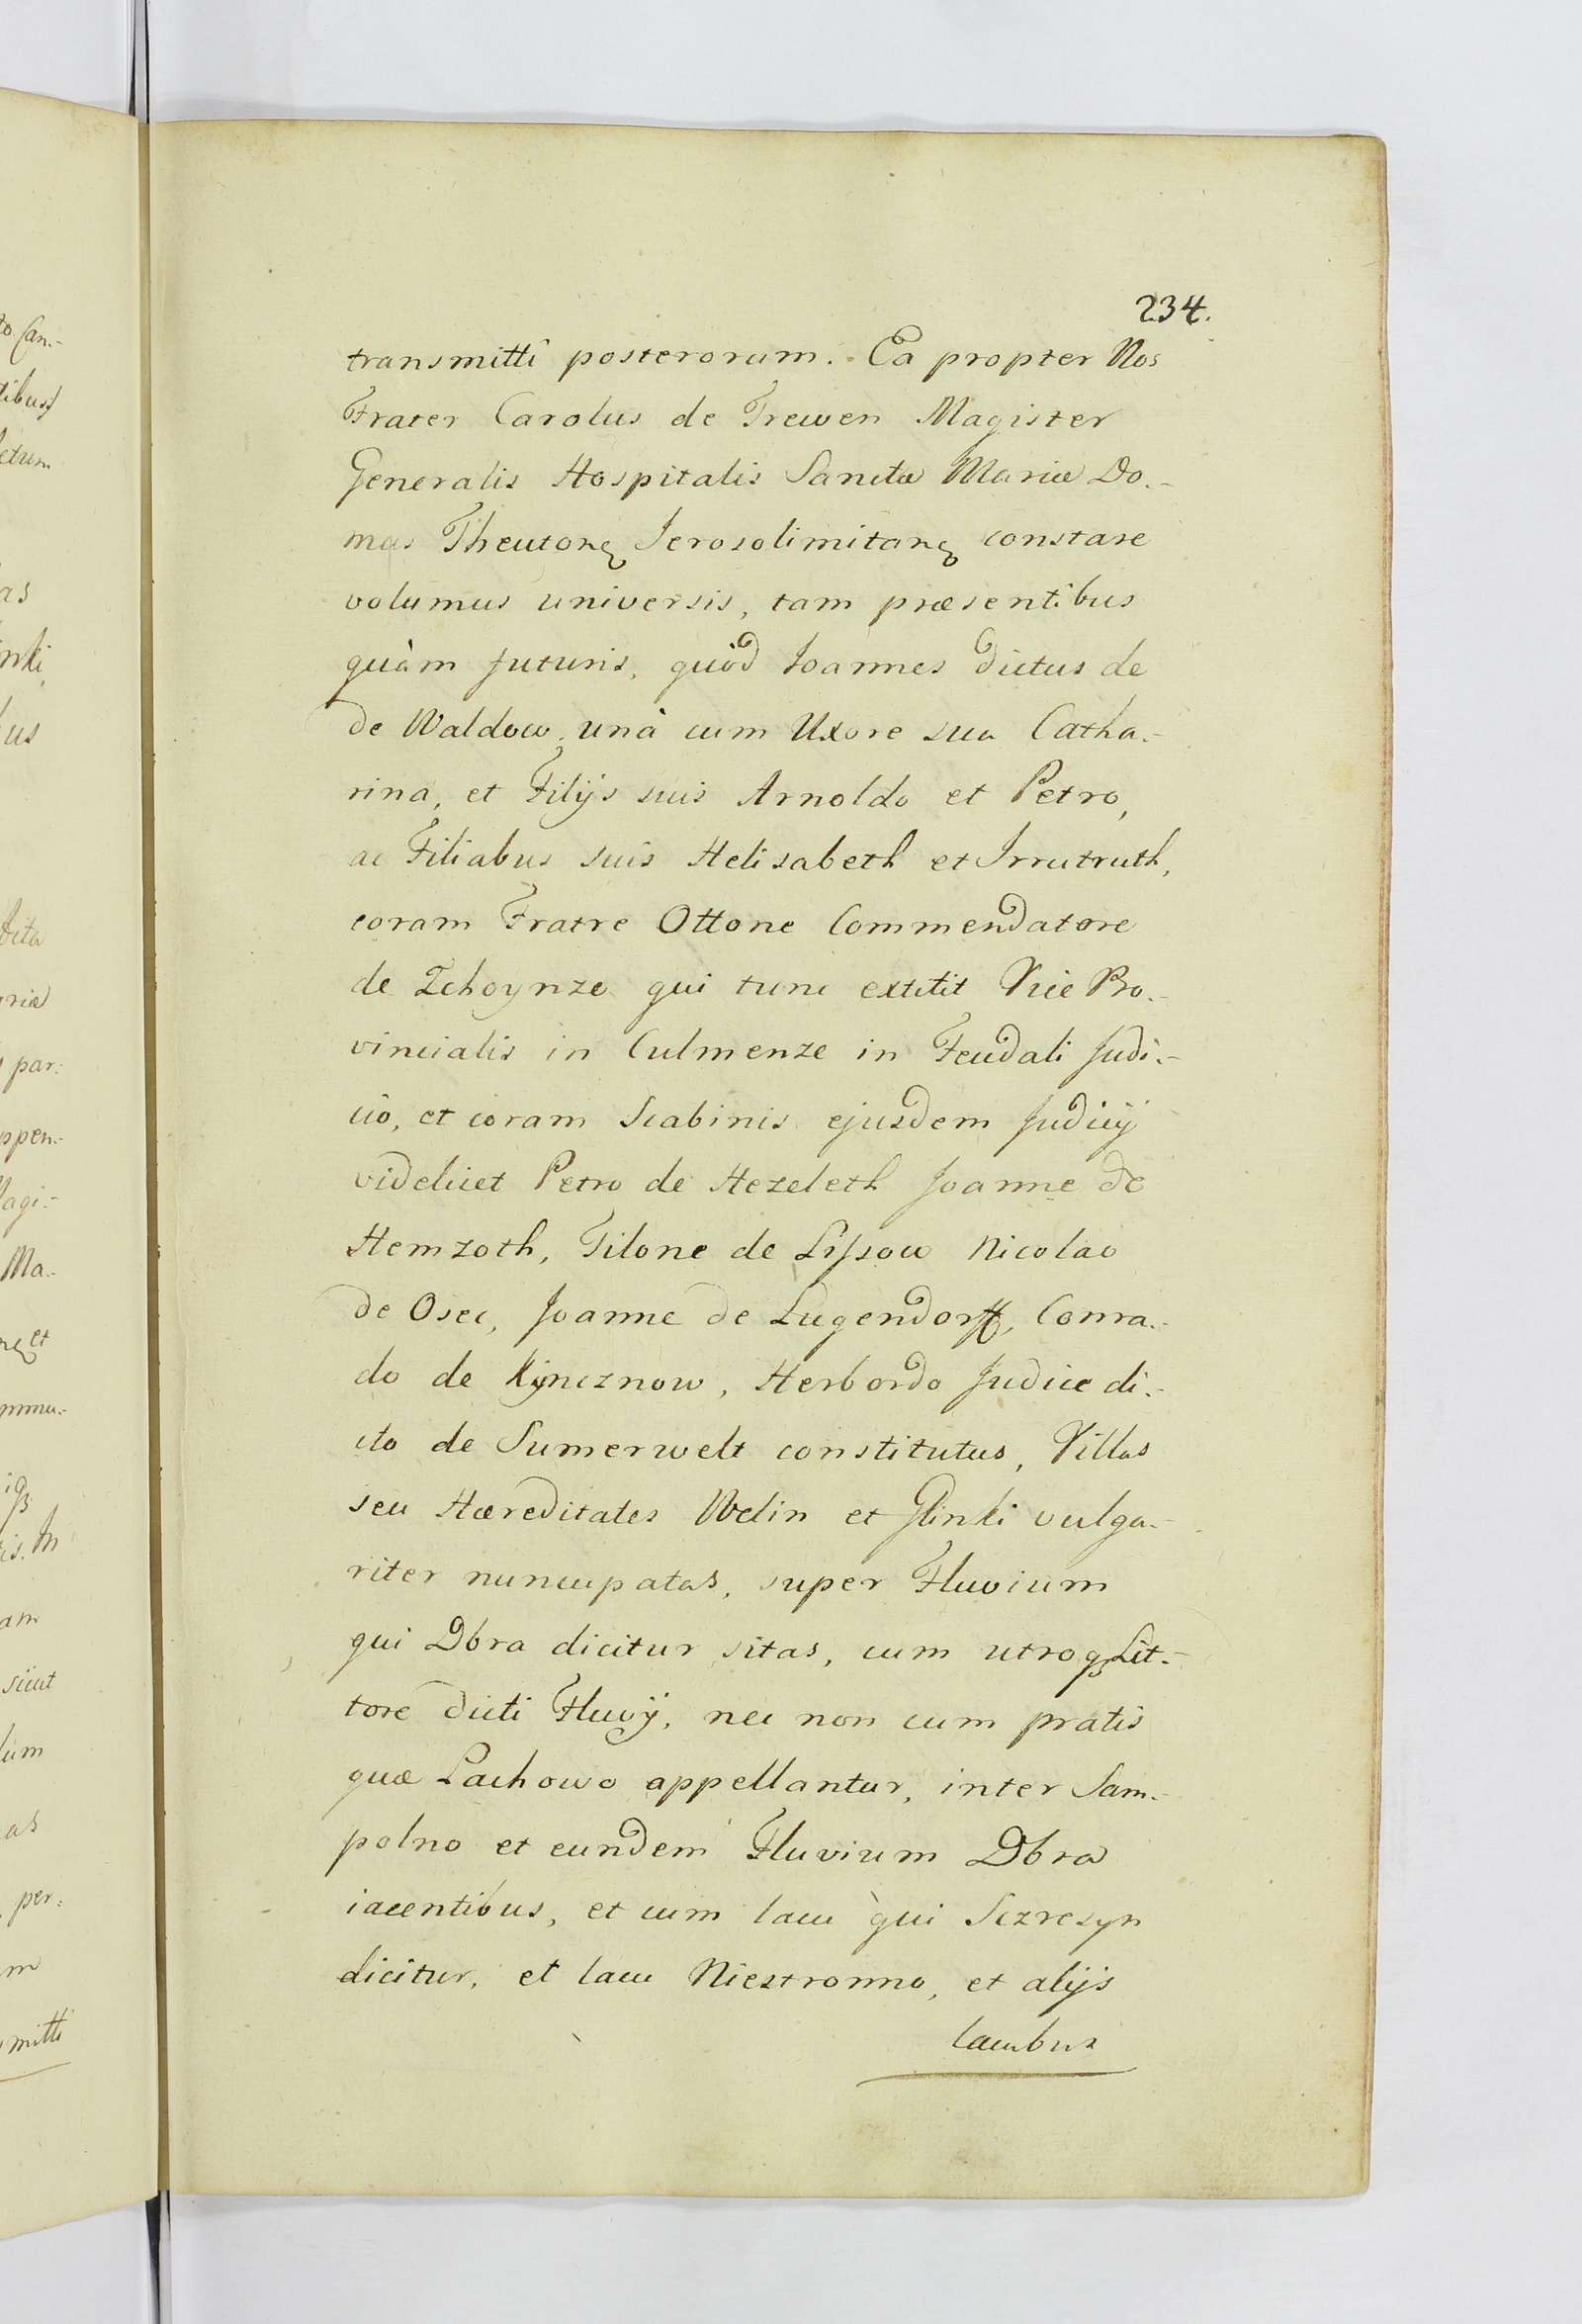 234.
transmitti posterorum. Ea propter Nos
Frater Carolus de Trewen Magister
Generalis Hospitalis Sanctæ Mariæ Do.-
mus Theutonę Jerosolimitanę constare
volumus universis, tam præsentibus
quàm futuris, quòd Joannes dictus de
de Waldow, unà cum Uxore sua Catha.-
rina, et Filijs suis Arnoldo et Petro,
ac Filiabus suis Helisabeth et Irrutruth,
coram Fratre Ottone Commendatore
de Zchoynze qui tunc extitit Vice Pro.-
vincialis in Culmenze in Feudali Judi.-
cio, et coram Scabinis ejusdem Judicij
videlicet Petro de Hezeleth Joanne de
Hemzoth, Tilone de Lissow Nicolao
de Osec, Joanne de Lugendorff, Conra.-
do de Kijncznow, Herbordo Judice di.-
cto de Sumerwelt constitutus, Villas
seu Hæreditates Welin et Glinki vulga.-
riter nuncupatas, super Fluvium
qui Dbra dicitur sitas, cum utroqꝫ Lit.-
tore dicti Fluvij, nec non cum pratis
quæ Lachowo appellantur, inter Sam.-
polno et eundem Fluvium Dbra
iacentibus, et cum lacu qui Sczresyn
dicitur, et lacu Niestronno, et alijs
lacubus
to Can.-
tibus
letum
as
inki,
bus
dicta
riæ
par:
ppen.-
Magi.-
Ma.-
et
ommu.-
is. In
am
sicut
lum
as
per:
m
mitti